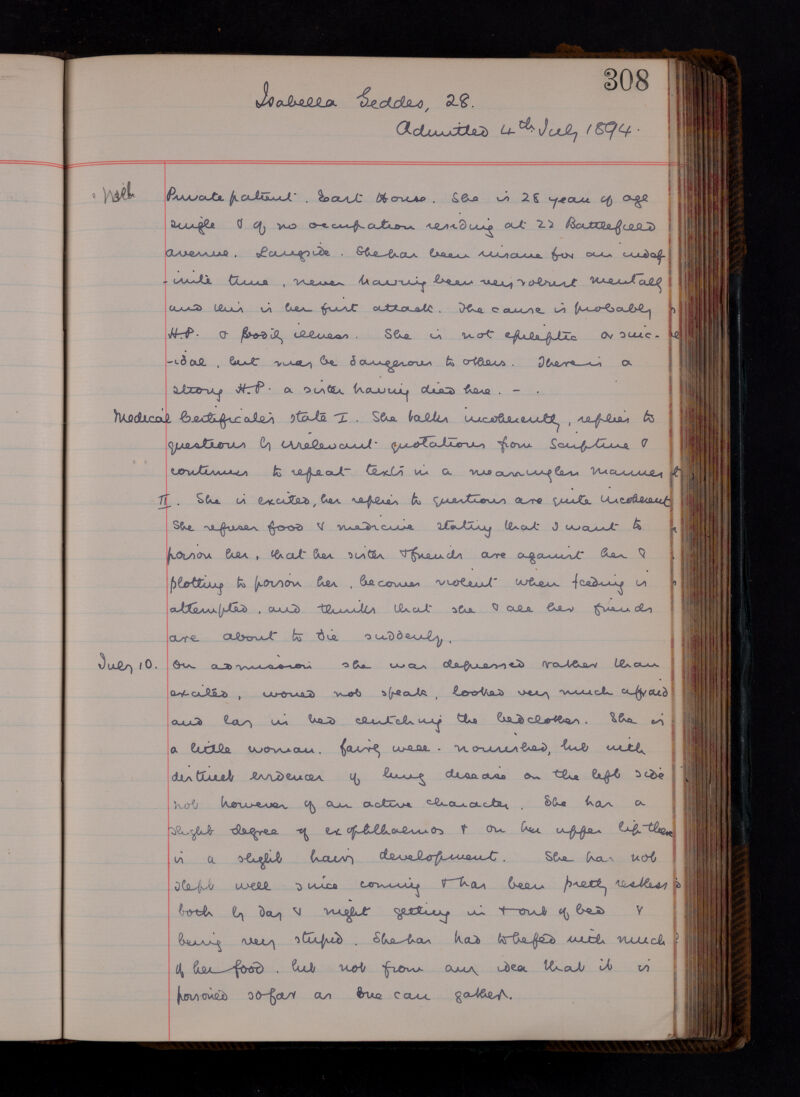 308
Isabella Geddes, 28.
Admitted 4th July 1894.
Private patient. East House. She is 28 years of age
single & of no occupation residing at 22 Battlefield
avenue. Langside. She has been insane for an indef
-inite time, never having been very robust mentally
and this is her first attack. The cause is probably
H.P. & Bodily illness. She is not epileptic or suic-
-idal, but may be dangerous to others. There is a
strong H.P. a sister having died here. - .
Medical Certificates state I. She talks incoherently, replies to
questions by irrelevant quotations from Scripture &
continues to repeat texts in a meaningless manner
II. She is excited, her replies to questions are quite incoherent
She refuses food & medicine stating that I want to
poison her, that her sister & friends are against her &
plotting to poison her, becomes violent when feeding is
attempted, and thinks that she & all her friends
are about to die suddenly.
July 10. On admission she was depressed rather than
excited, would not speak, looked very much afraid
and lay in bed clutching the bedclothes. She is
a little woman. fairly well-nourished, but with
distinct evidences of lung disease on the left side
not however of an active character. She has a
slight degree of exophthalmos & on her upper lip there
is a slight hairy development. She has not
slept well since coming & has been pretty restless
both by day & night getting in & out of bed &
being very stupid. She has had to be fed with much
of her food. but not from any idea that it is
poisoned so far as one can gather.